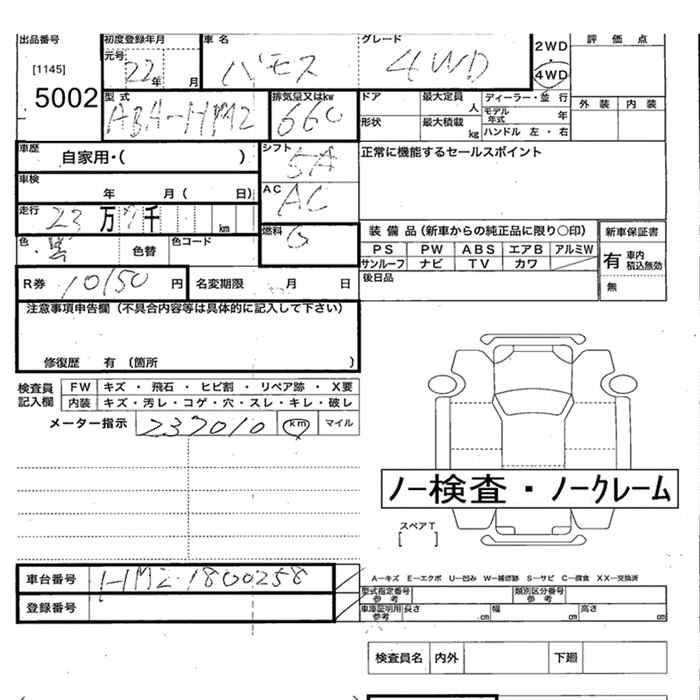 出品番号 初度登録年月 車名 グレード 評価点
元号 22年 月 バモス 4WD 2WD 4WD
[1145]
5002
外装 内装
型式 ABA-HM2 排気量又はkw 660
ドア 最大定員 人 ディーラー・並行
形状 最大積載 kg モデル年式 年
ハンドル 左・右
車歴 自家用・( ) シフト 5A
正常に機能するセールスポイント
車検 年 月( 日) AC AC
走行 23万 千 km
燃料 G
装備品(新車からの純正品に限り○印) 新車保証書
色 黒 色替 色コード
PS PW ABS エアB アルミW
サンルーフ ナビ TV カワ
有 車内積込無効
無
後日品
R券 10150円 名変期限 月 日
注意事項申告欄(不具合内容等は具体的に記入して下さい)
修復歴 有(箇所 )
検査員記入欄
FW キズ・飛石・ヒビ割・リペア跡・X要
内装 キズ・汚レ・コゲ・穴・スレ・キレ・破レ
メーター指示 237010 km マイル
ノー検査・ノークレーム
スペアT
[ ]
車台番号 HM2-1800258
登録番号
A-キズ E-エクボ U-凹み W-補修跡 S-サビ C-腐食 XX-交換済
型式指定番号参考 類別区分番号参考
車庫証明用参考 長さ cm 幅 cm 高さ cm
検査員名 内外 下廻